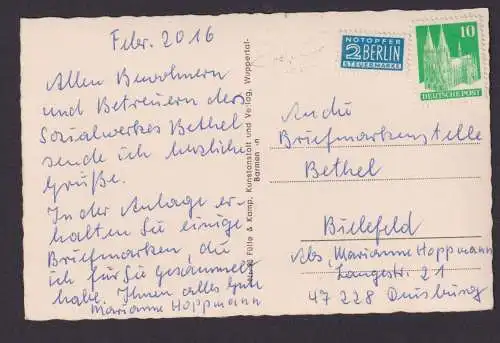 Febr. 2016
Allen Bewohnern
und Betreuern des
Sozialwerkes Bethel
sende ich herzliche
Grüße.
In der Anlage er-
halten Sie einige
Briefmarken, die
ich für Sie gesammelt
habe. Ihnen alles Gute
Marianne Hoppmann
Fülle & Kamp, Kunstanstalt und Verlag, Wuppertal-
Barmen
NOTOPFER
2 BERLIN
STEUERMARKE
10
DEUTSCHE POST
An die
Briefmarkenstelle
Bethel
Bielefeld
Abs. Marianne Hoppmann
Langestr. 21
47228 Duisburg